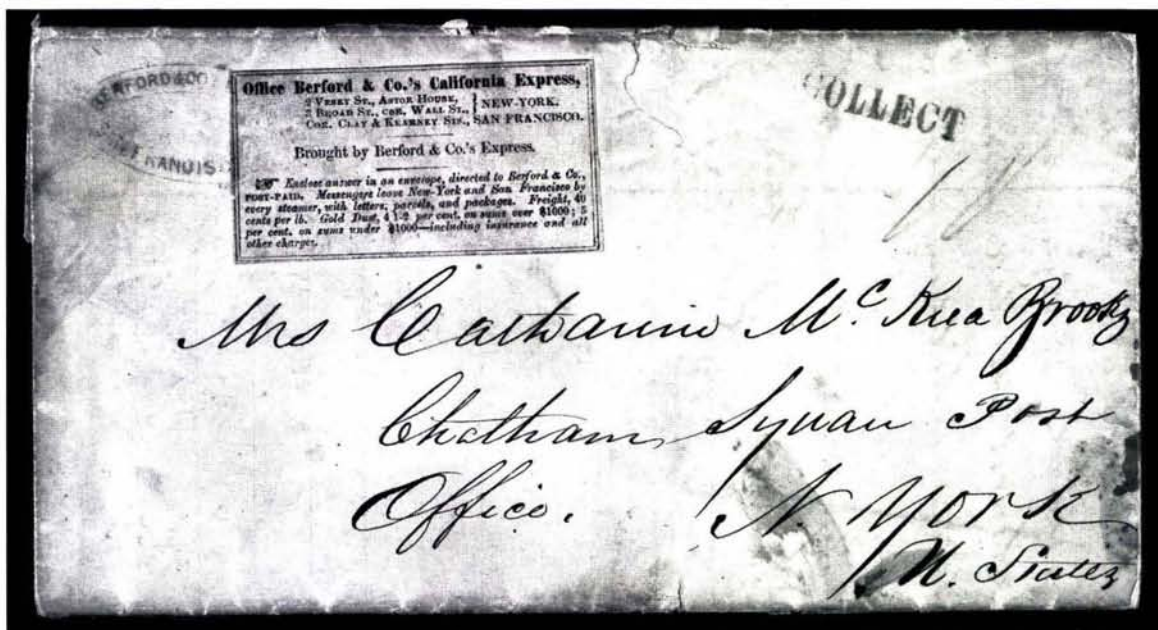 BERFORD & CO
FRANCIS
Office Berford & Co.'s California Express,
2 VESEY ST., ASTOR HOUSE,
2 BROAD ST., COR. WALL ST., } NEW-YORK.
COR. CLAY & KEARNEY STS., SAN FRANCISCO.
Brought by Berford & Co.'s Express.
☞ Enclose answer in an envelope, directed to Berford & Co.,
POST-PAID. Messengers leave New-York and San Francisco by
every steamer, with letters, parcels, and packages. Freight, 40
cents per lb. Gold Dust, 4 1-2 per cent. on sums over $1000; 5
per cent. on sums under $1000—including insurance and all
other charges.
COLLECT
Mrs Catharine Mc. Kea Brooks
Chatham Square Post
Office. N. York
U. States